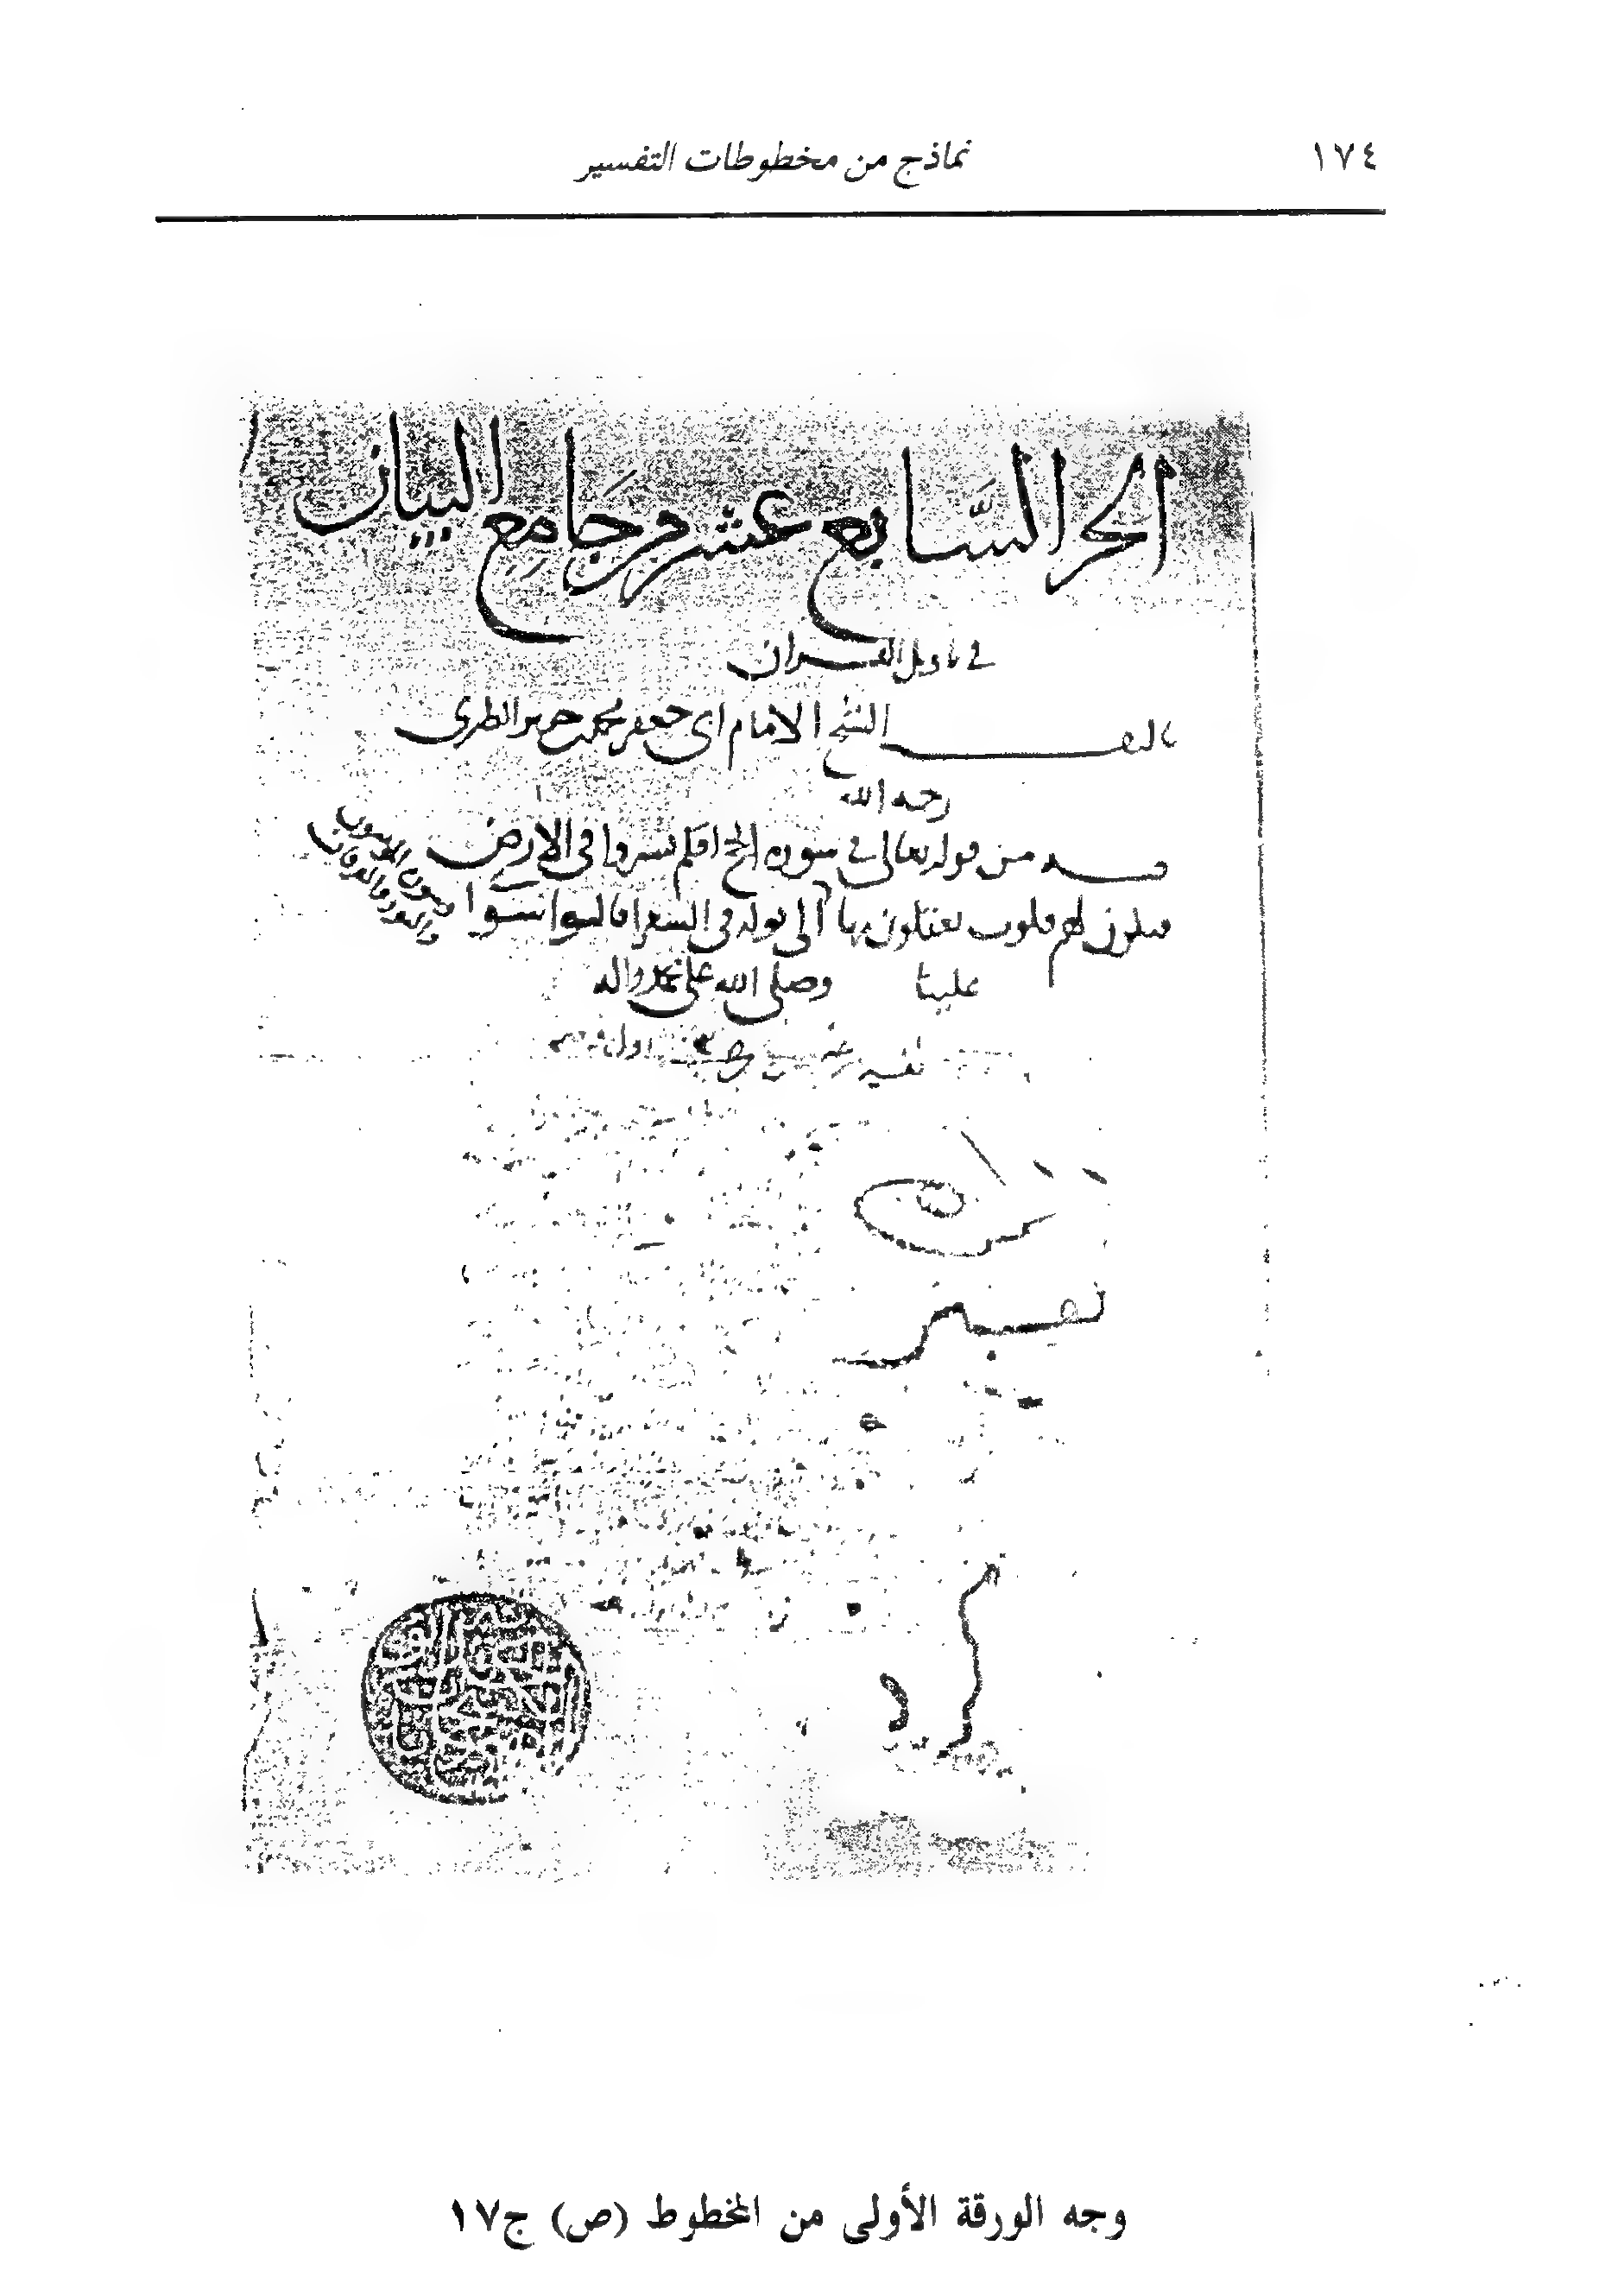 ١٧٤
نماذج من مخطوطات التفسير
الجز السَّابع عشر من جَامِع البيان
في تاويل القران
تاليف الشيخ الامام ابي جعفر محمد بن جرير الطبري
رحمه الله
فيه من قوله تعالى في سوره الحج افلم يسيروا في الارض
فيكون لهم قلوب يعقلون بها الى قوله في الشعرا قالوا سوا
علينا وصلى الله على محمد واله
والنور والفرقان
تفسير
وجه الورقة الأولى من المخطوط (ص) ج١٧